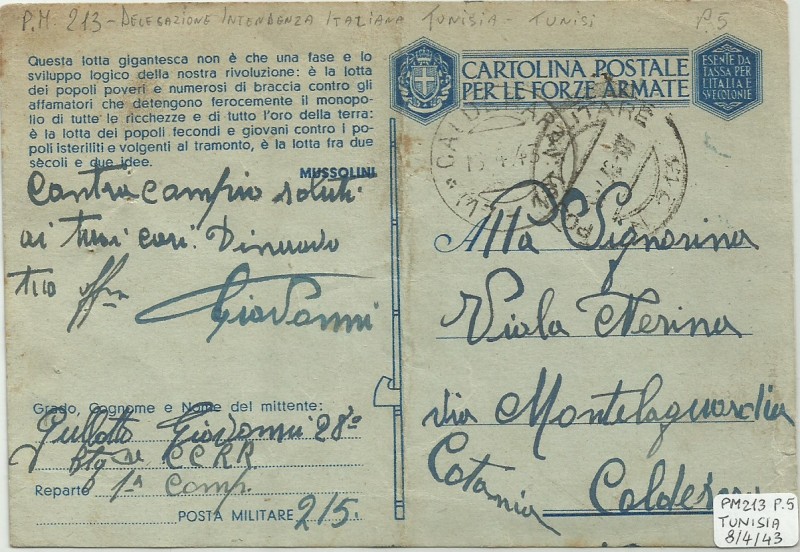 P.M. 213 - DELEGAZIONE INTENDENZA ITALIANA TUNISIA - TUNISI P.5
Questa lotta gigantesca non è che una fase e lo
sviluppo logico della nostra rivoluzione: è la lotta
dei popoli poveri e numerosi di braccia contro gli
affamatori che detengono ferocemente il monopo-
lio di tutte le ricchezze e di tutto l'oro della terra:
è la lotta dei popoli fecondi e giovani contro i po-
poli isteriliti e volgenti al tramonto, è la lotta fra due
sècoli e due idee.
MUSSOLINI
Contra campio saluti
ai tuoi cari. Dinuovo
tuo
Giovanni
Grado, Cognome e Nome del mittente:
Giovanni 28º
Btg CC.RR.
Reparto 1ª Comp.
POSTA MILITARE 215.
CARTOLINA POSTALE
PER LE FORZE ARMATE
ESENTE DA
TASSA PER
L'ITALIA E
SVE COLONIE
15.4.43
Alla Signorina
Viola Nerina
via Montelaguardia
Catania
PM213 P.5
TUNISIA
8/4/43